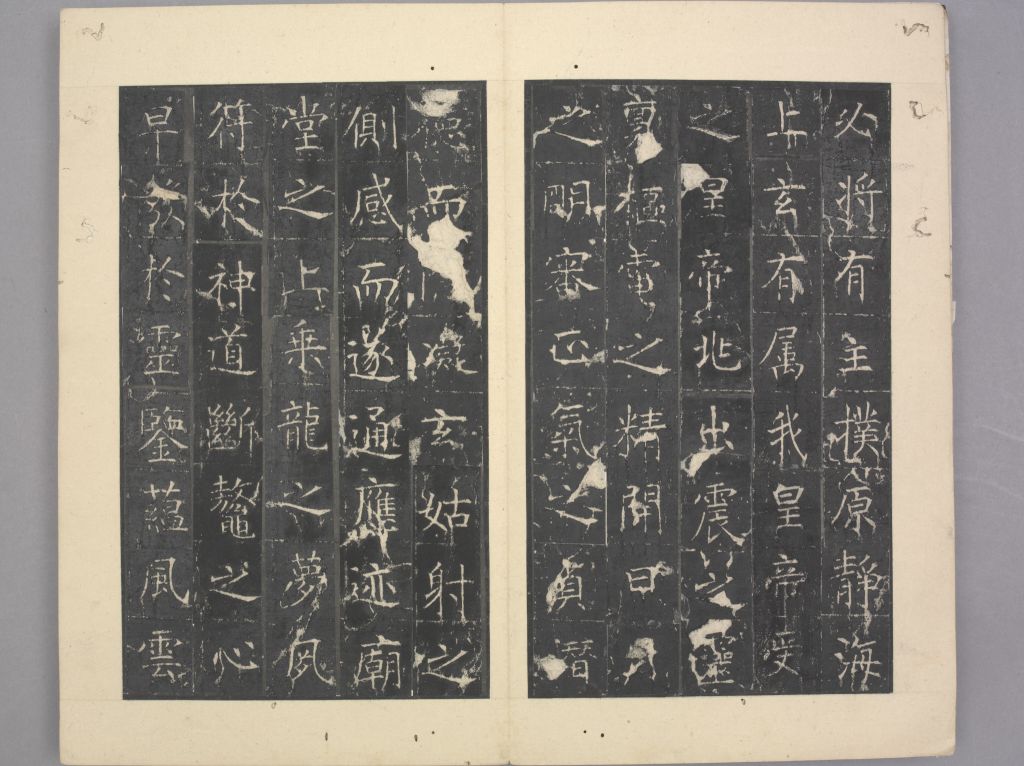 必將有主撲原靜海
上玄有属我皇帝受
之呈帝兆出震之
樞電之精開日月
之明審正氣之貞潛
而凝玄姑射之
側感而遂通應迹廟
堂之上乗龍之夢夙
符於神道斷鼇之心
早於靈鑒蘊風雲